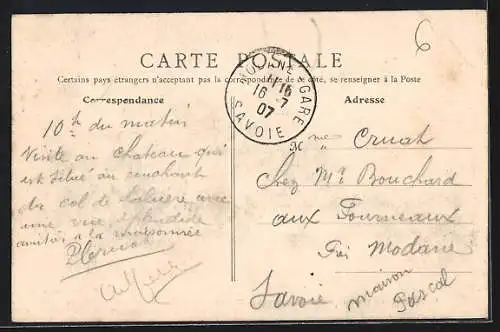 6
CARTE POSTALE
Certains pays étrangers n'acceptant pas la correspondance de ce côté, se renseigner à la Poste
Correspondance
Adresse
GARE
16 - 7
07
SAVOIE
10h du matin
Visite au Chateau qui
est situé au couchant
du col de
une vue splendide
amitiés a la
Mme Cruat
Chez Mr Bouchard
aux Fourneaux
Près Modane
Savoie
maison
Pascal